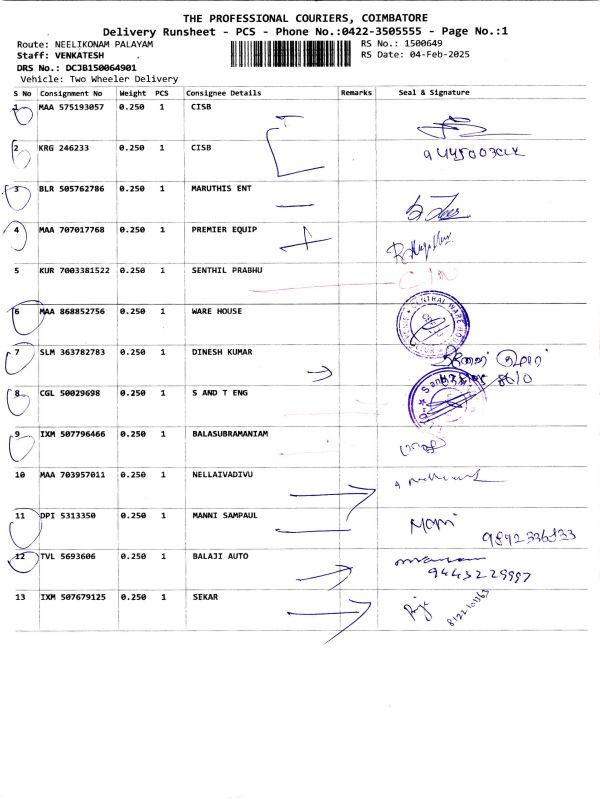 THE PROFESSIONAL COURIERS, COIMBATORE
Delivery Runsheet - PCS - Phone No.:0422-3505555 - Page No.:1
Route: NEELIKONAM PALAYAM RS No.: 1500649
Staff: VENKATESH RS Date: 04-Feb-2025
DRS No.: DCJB150064901
Vehicle: Two Wheeler Delivery
S No Consignment No Weight PCS Consignee Details Remarks Seal & Signature
1 MAA 575193057 0.250 1 CISB
2 KRG 246233 0.250 1 CISB
3 BLR 505762786 0.250 1 MARUTHIS ENT
4 MAA 707017768 0.250 1 PREMIER EQUIP
5 KUR 7003381522 0.250 1 SENTHIL PRABHU
6 MAA 868852756 0.250 1 WARE HOUSE
7 SLM 363782783 0.250 1 DINESH KUMAR
8 CGL 50029698 0.250 1 S AND T ENG
9 IXM 507796466 0.250 1 BALASUBRAMANIAM
10 MAA 703957011 0.250 1 NELLAIVADIVU
11 DPI 5313350 0.250 1 MANNI SAMPAUL
9842336133
12 TVL 5693606 0.250 1 BALAJI AUTO
9443229997
13 IXM 507679125 0.250 1 SEKAR